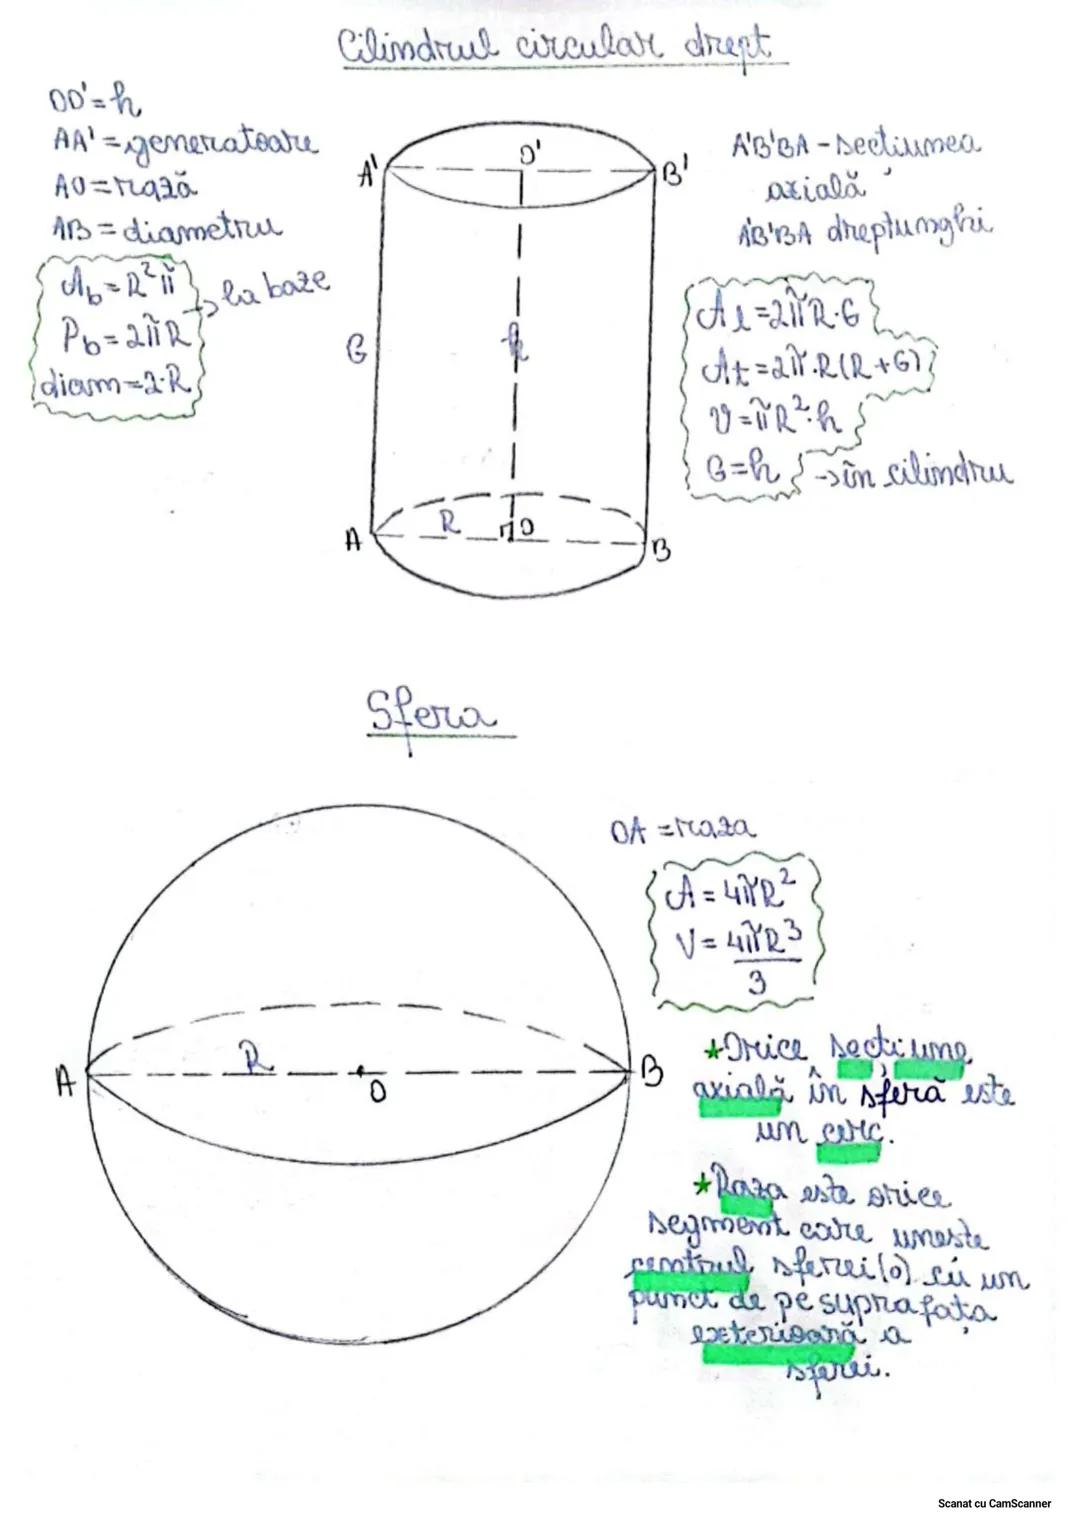 Cilindrul circular drept
OO'=h
AA'=generatoare
AO=rază
AB=diametru
Ab=R²π
Pb=2πR
diam=2·R
→ la baze
A'
O'
B'
G
h
A
R
O
B
A'B'BA - secțiunea
axială
A'B'BA dreptunghi
Al=2πR·G
At=2π·R(R+G)
V=πR²·h
G=h
→ în cilindru
Sfera
A
R
O
B
OA=raza
A=4πR²
V=4πR³
3
★Orice secțiune
axială în sferă este
un cerc.
★Raza este orice
segment care unește
centrul sferei(o) cu un
punct de pe suprafața
exterioară a
sferei.
Scanat cu CamScanner